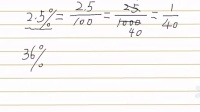 2.5% = 2.5/100 = 25/1000 = 1/40
40
36%